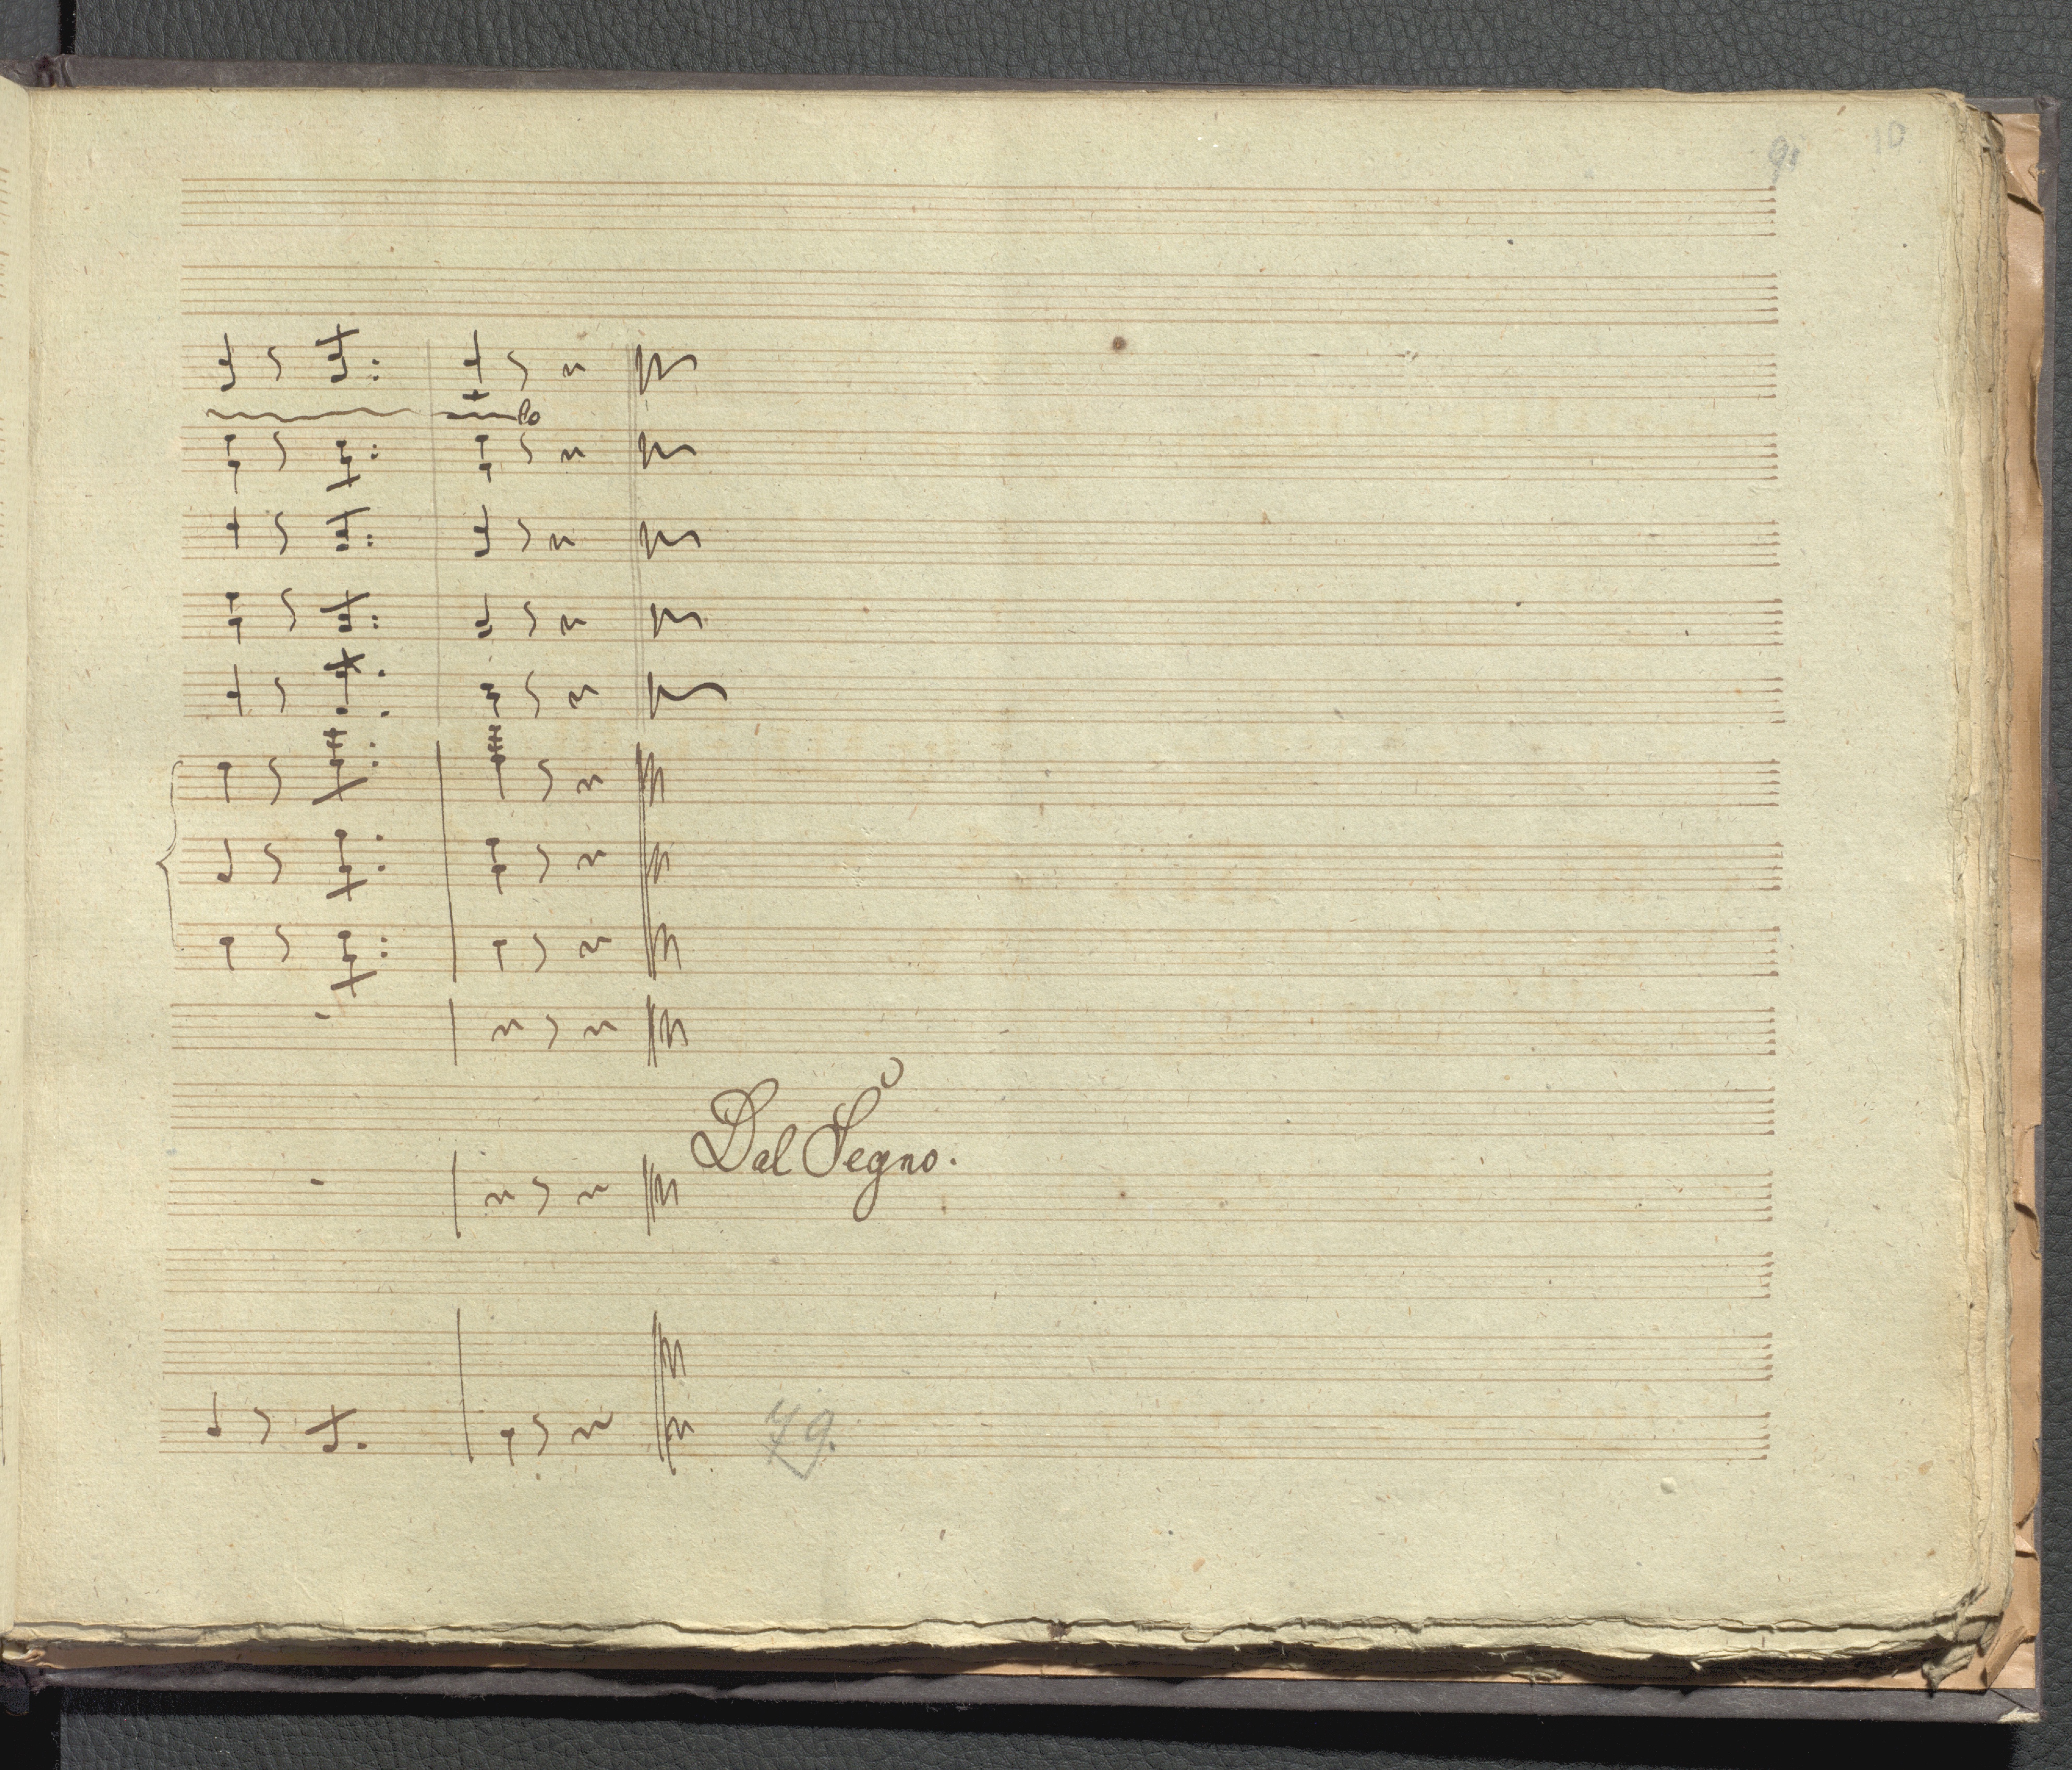 9. 10
lo
Dal Segno.
79.